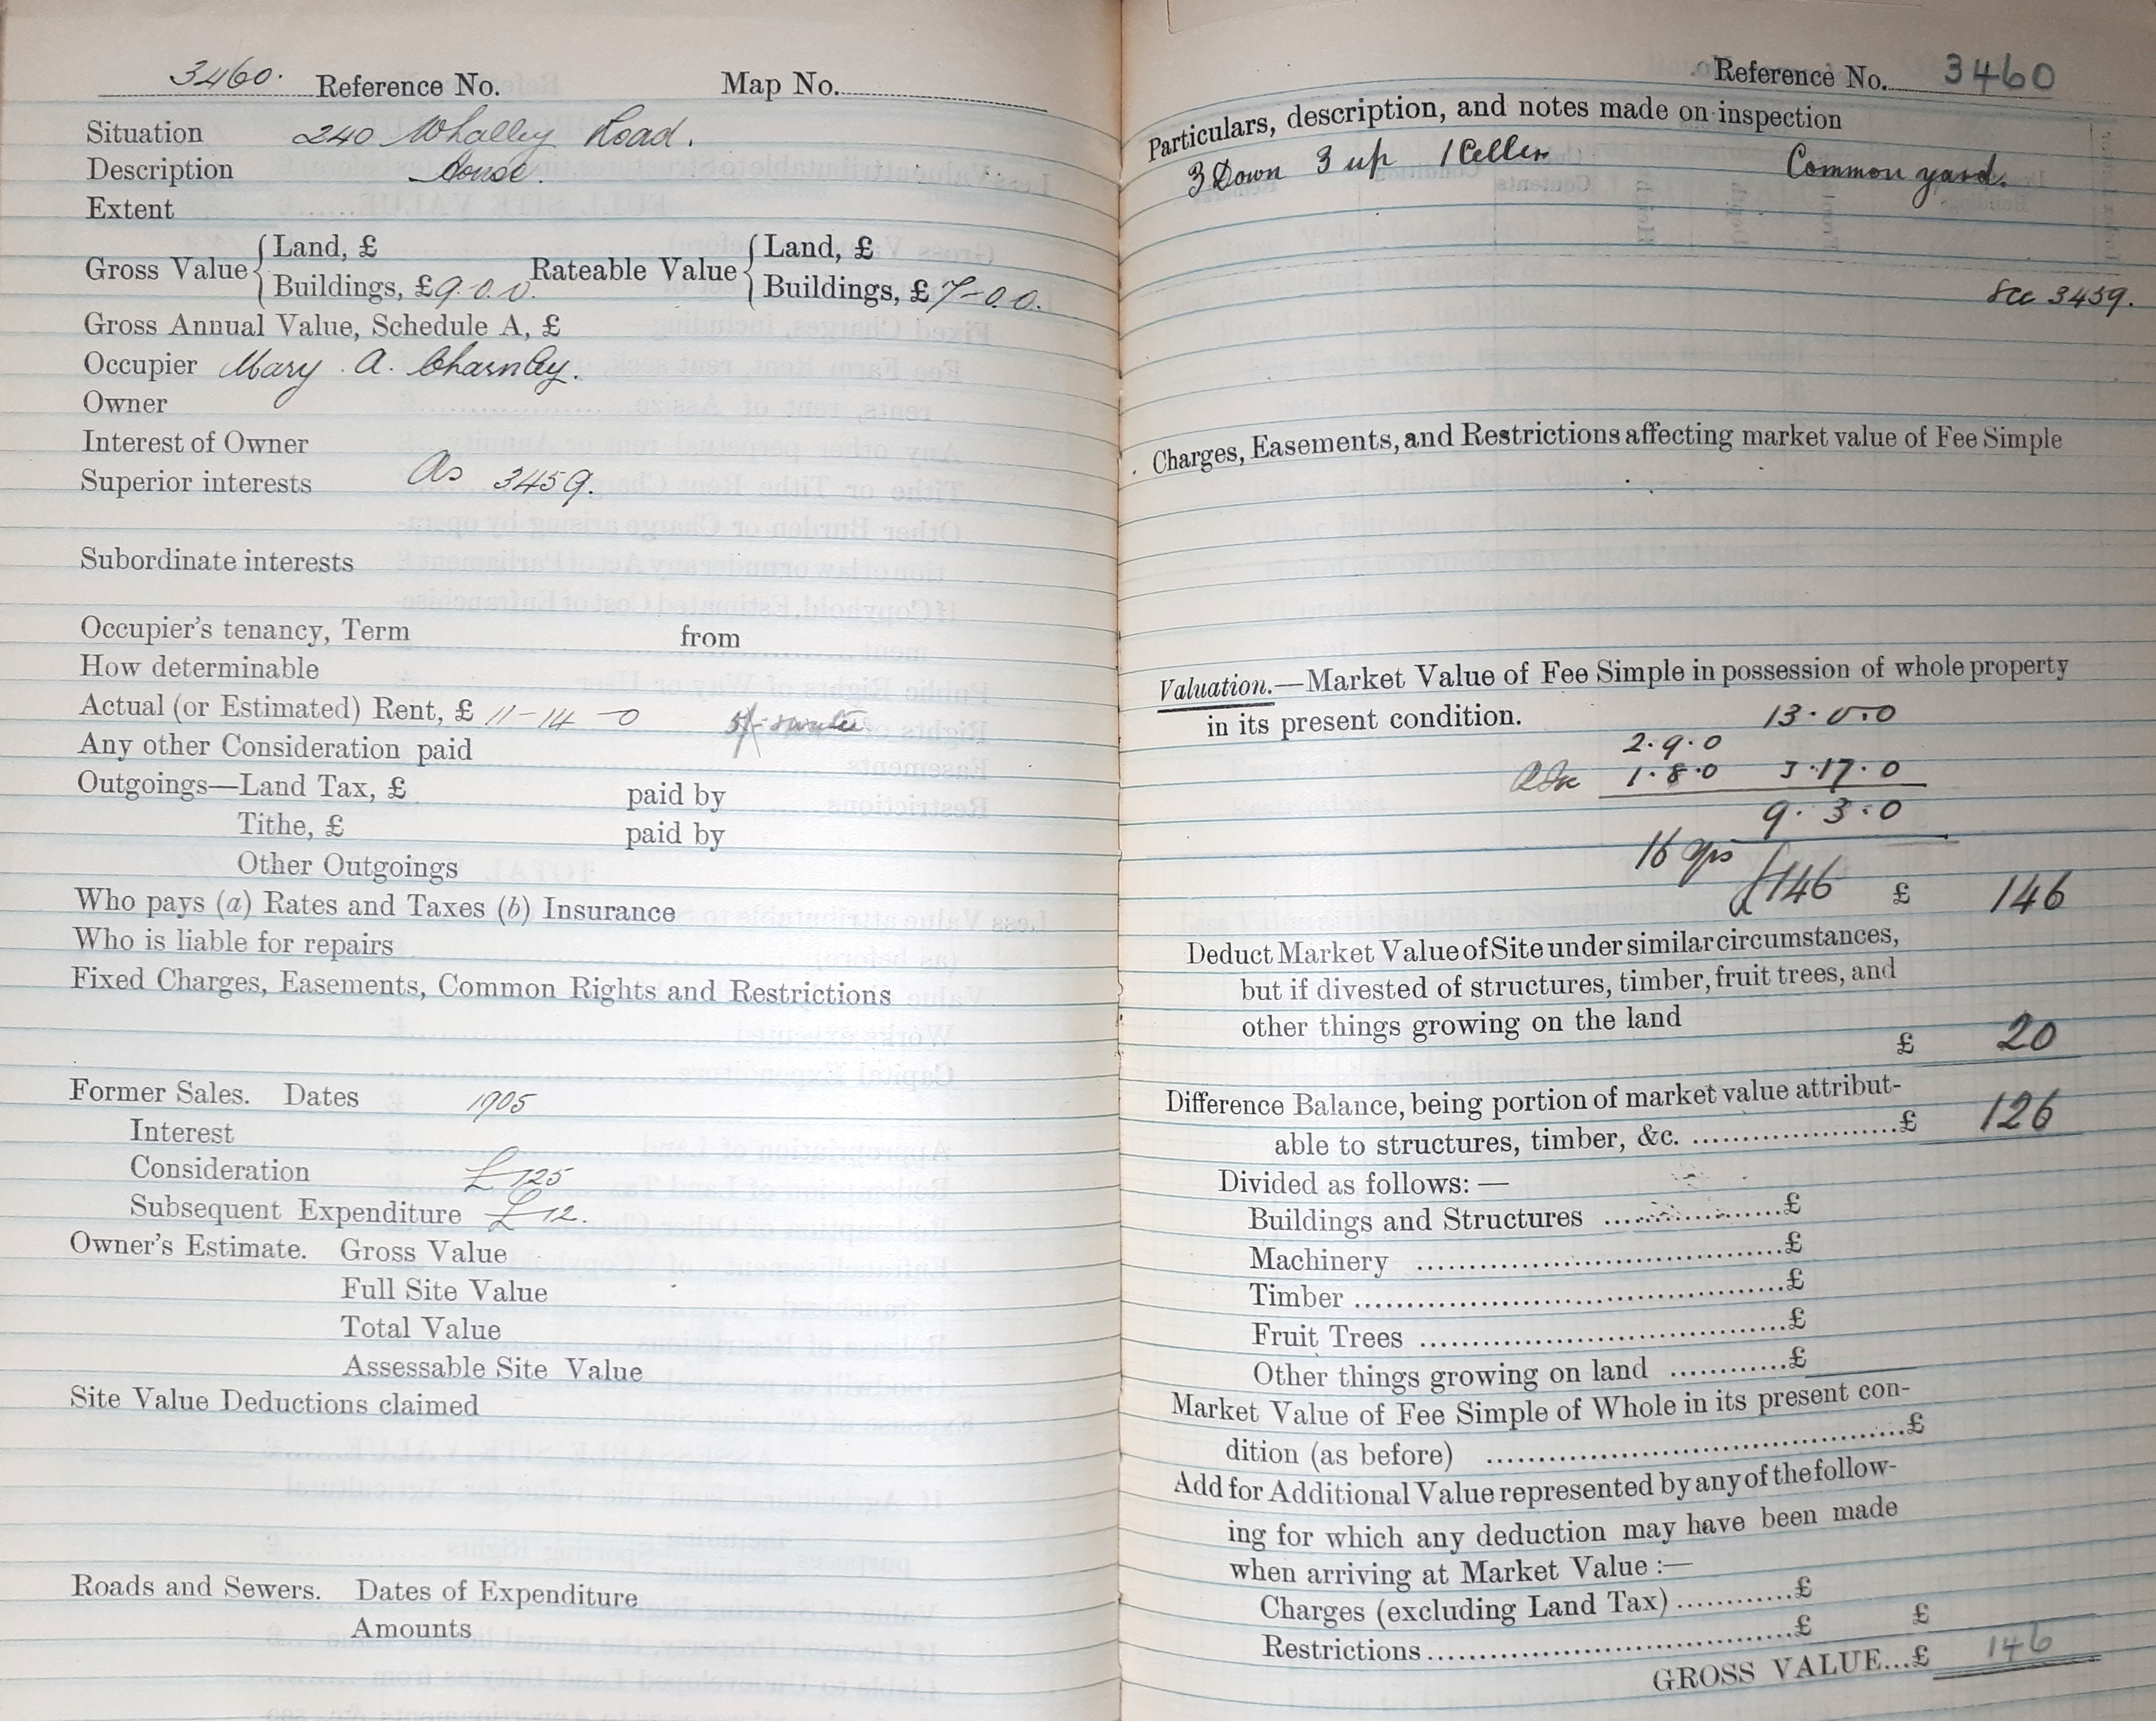 3460. Reference No. Map No.
Situation 240 Whalley Road.
Description House.
Extent
Gross Value { Land, £ Rateable Value { Land, £
Buildings, £9.0.0. Buildings, £7-0.0.
Gross Annual Value, Schedule A, £
Occupier Mary A. Charnley.
Owner
Interest of Owner
Superior interests As 3459.
Subordinate interests
Occupier's tenancy, Term from
How determinable
Actual (or Estimated) Rent, £ 11-14-0
Any other Consideration paid
Outgoings—Land Tax, £ paid by
Tithe, £ paid by
Other Outgoings
Who pays (a) Rates and Taxes (b) Insurance
Who is liable for repairs
Fixed Charges, Easements, Common Rights and Restrictions
Former Sales. Dates 1905
Interest
Consideration £125
Subsequent Expenditure £12.
Owner's Estimate. Gross Value
Full Site Value
Total Value
Assessable Site Value
Site Value Deductions claimed
Roads and Sewers. Dates of Expenditure
Amounts
Reference No. 3460
Particulars, description, and notes made on inspection
3 Down 3 up 1 Celler Common yard.
See 3459.
Charges, Easements, and Restrictions affecting market value of Fee Simple
Valuation.—Market Value of Fee Simple in possession of whole property
in its present condition. 13.0.0
2.9.0
1.8.0 3.17.0
9.3.0
16 yrs
£146 £ 146
Deduct Market Value of Site under similar circumstances,
but if divested of structures, timber, fruit trees, and
other things growing on the land
£ 20
Difference Balance, being portion of market value attribut-
able to structures, timber, &c. ........................£ 126
Divided as follows:—
Buildings and Structures ....................£
Machinery ........................................£
Timber ..............................................£
Fruit Trees ........................................£
Other things growing on land ............£
Market Value of Fee Simple of Whole in its present con-
dition (as before) .............................................£
Add for Additional Value represented by any of the follow-
ing for which any deduction may have been made
when arriving at Market Value :—
Charges (excluding Land Tax) ............£
Restrictions........................................£ £
GROSS VALUE...£ 146